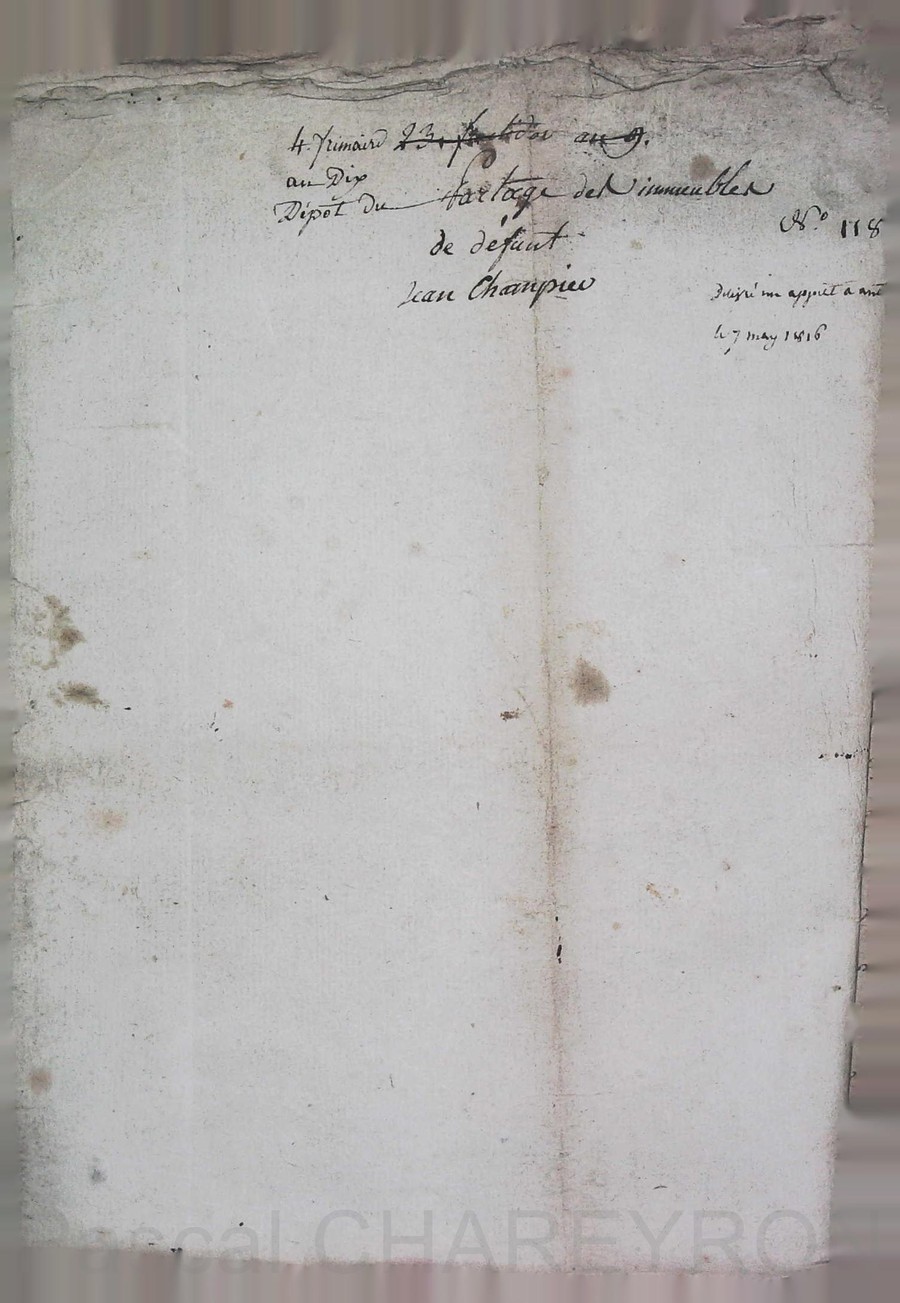 4. frimaire 23. fructidor an 9.
an Dix
Dépôt du Partage des immeubles
N.o 118
de défunt
Jean Champier
Délivré un
le 7 may 1816
Pascal CHAREYRO